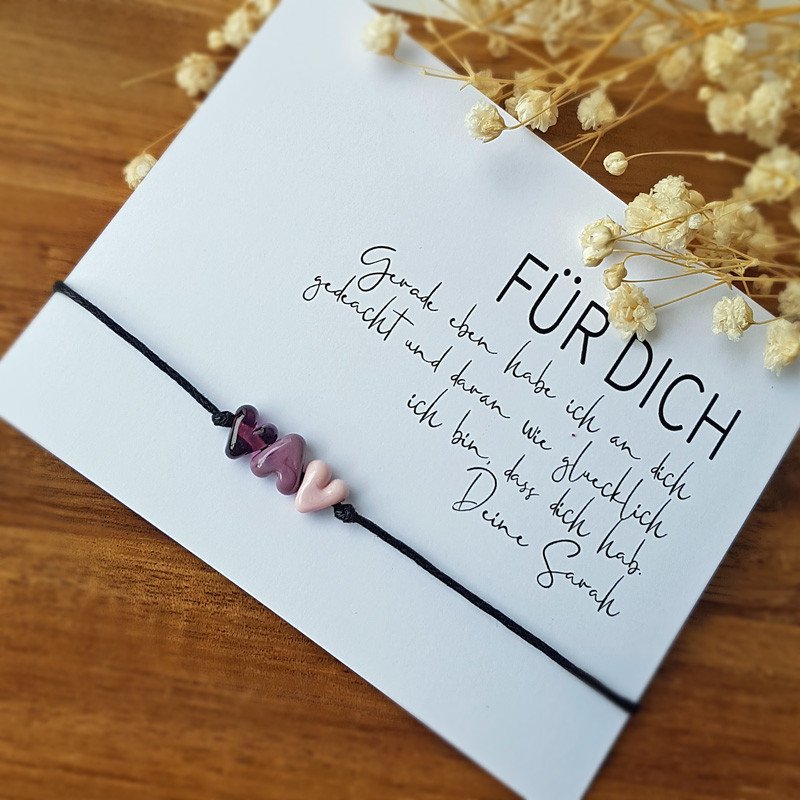 FÜR DICH
Gerade eben habe ich an dich
gedacht und daran wie gluecklich
ich bin, dass dich hab.
Deine Sarah